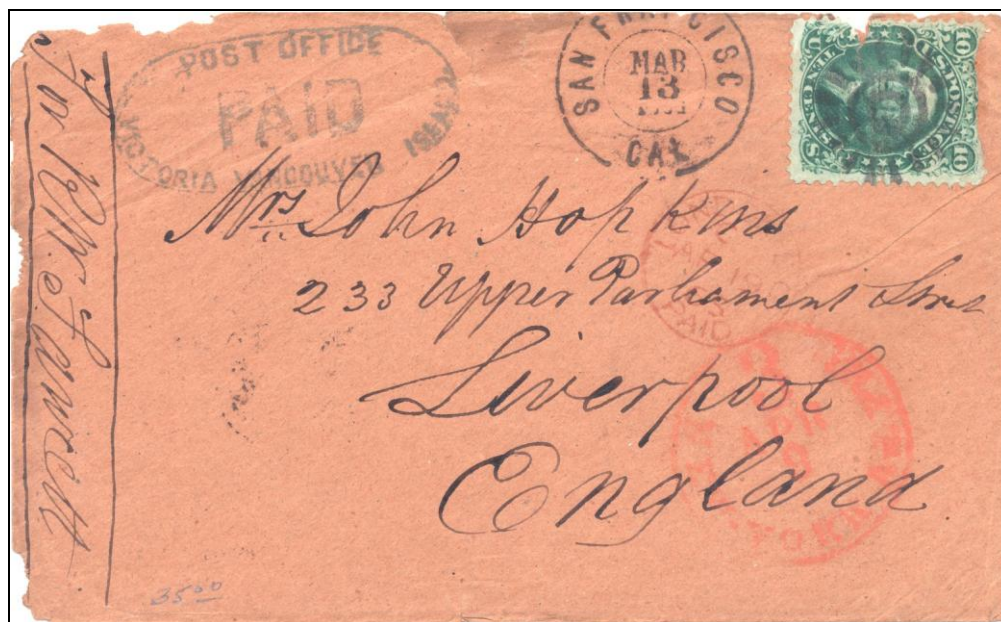 POST OFFICE
PAID
VICTORIA VANCOUVER ISLAND
SAN FRANCISCO
MAR
13
CAL
U.S. POSTAGE
TEN CENTS
10 10
Mrs. John Hopkins
233 Upper Parliament Street
Liverpool
England
PAID
3
APR
PAID
35 00